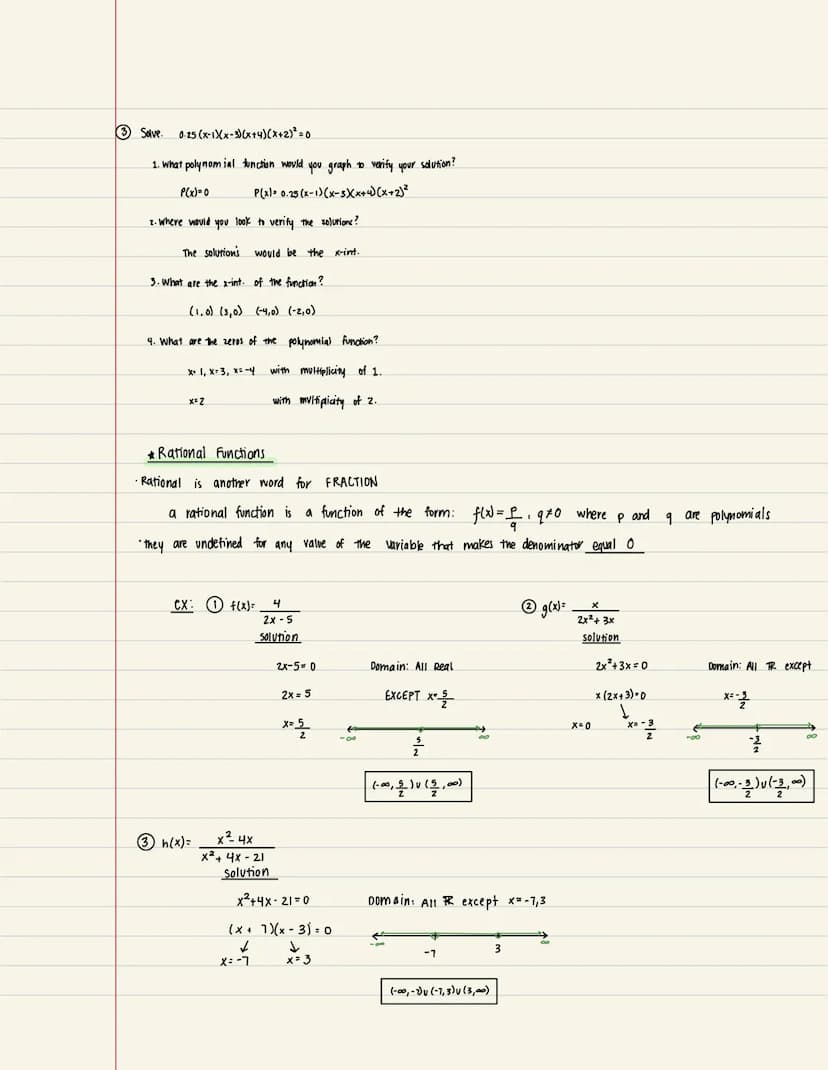 ③ Solve. 0.25(x-1)(x-3)(x+4)(x+2)² = 0
1. What polynomial function would you graph to verify your solution?
P(x)=0 P(x)= 0.25(x-1)(x-3)(x+4)(x+2)²
2. Where would you look to verify the solutions?
The solutions would be the x-int.
3. What are the x-int. of the function?
(1,0) (3,0) (-4,0) (-2,0)
4. What are the zeros of the polynomial function?
x= 1, x=3, x=-4 with multiplicity of 1.
x=2 with multiplicity of 2.
★ Rational Functions
· Rational is another word for FRACTION
a rational function is a function of the form: f(x) = p/q, q≠0 where p and q are polynomials
· they are undefined for any value of the variable that makes the denominator equal 0
ex: ① f(x)= 4/(2x-5)
solution
2x-5=0 Domain: All Real
2x=5 EXCEPT x=5/2
x=5/2
-∞ 5/2 ∞
(-∞, 5/2) ∪ (5/2, ∞)
② g(x)= x/(2x²+3x)
solution
2x²+3x=0 Domain: All ℝ except
x(2x+3)=0 x=-3/2
x=0 x=-3/2
-∞ -3/2 ∞
(-∞, -3/2) ∪ (-3/2, ∞)
③ h(x)= (x²-4x)/(x²+4x-21)
solution
x²+4x-21=0 Domain: All ℝ except x=-7,3
(x+7)(x-3)=0
x=-7 x=3
-∞ -7 3 ∞
(-∞,-7)∪(-7,3)∪(3,∞)